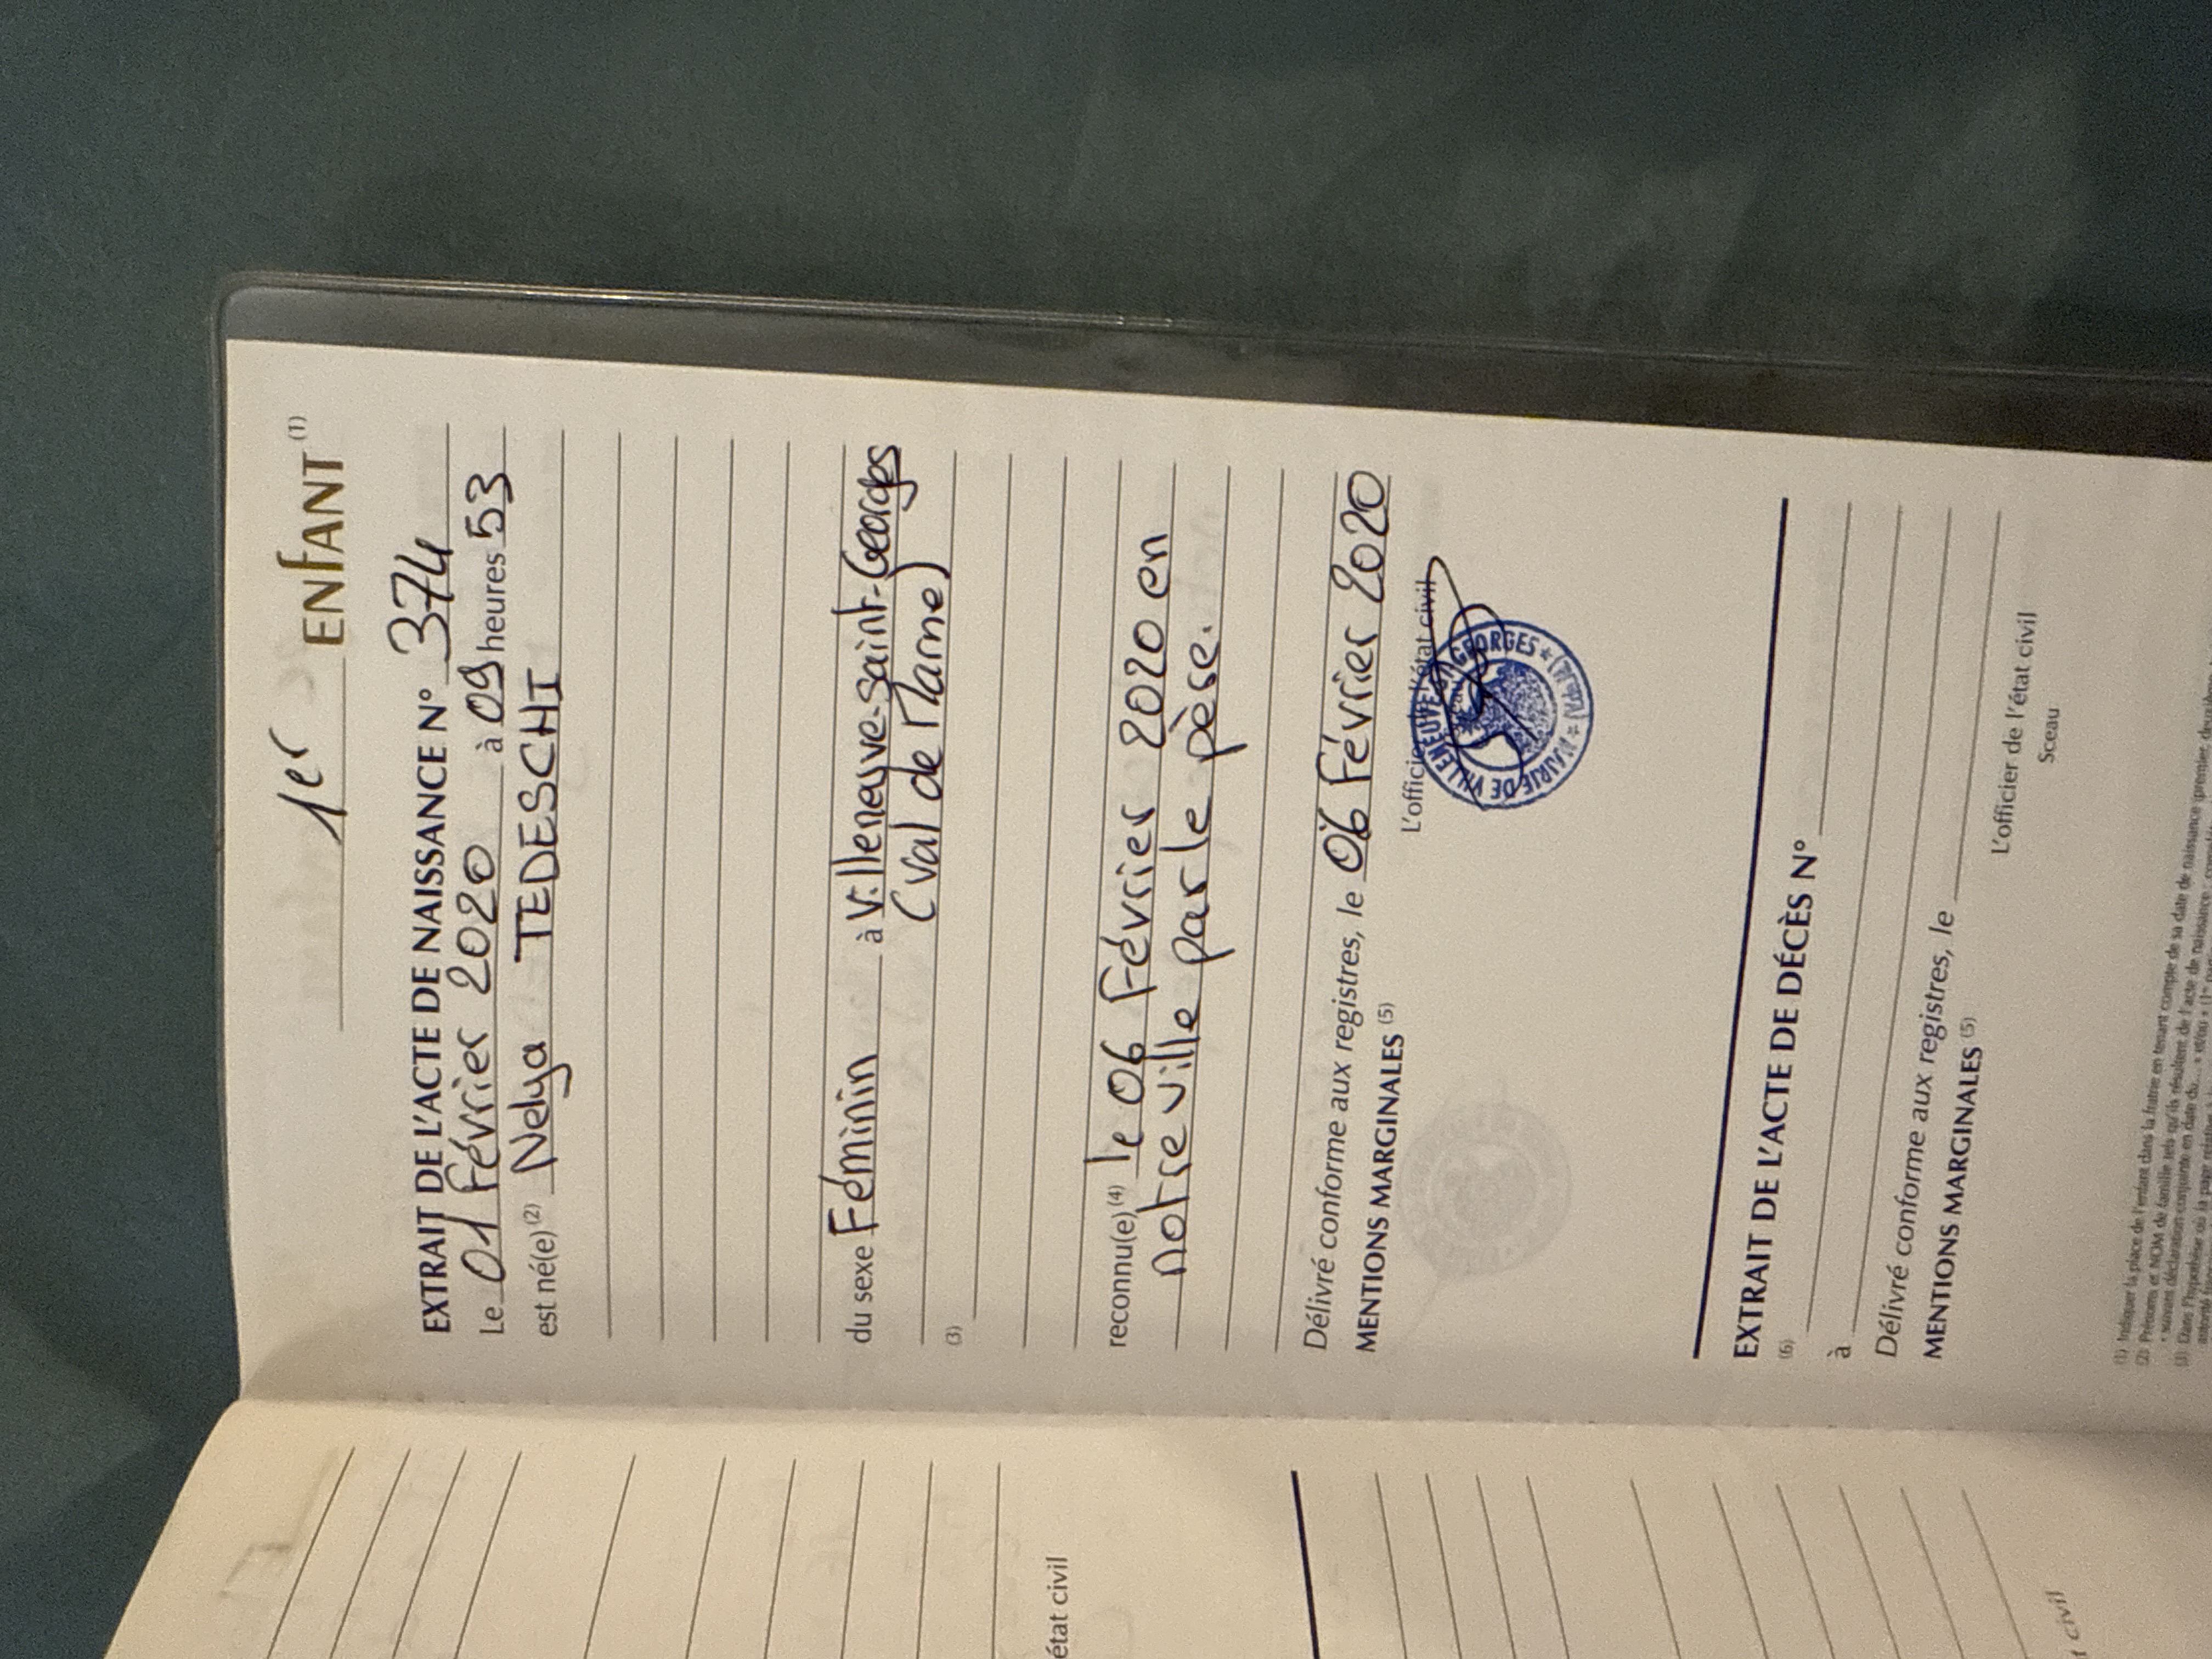 1er ENFANT (1)
EXTRAIT DE L'ACTE DE NAISSANCE N° 374
Le 01 Février 2020 à 09 heures 53
est né(e) (2) Nelya TEDESCHI
du sexe Féminin à Villeneuve-Saint-Georges
(Val de Marne)
(3)
reconnu(e) (4) le 06 Février 2020 en
notre ville par le père.
Délivré conforme aux registres, le 06 Février 2020
MENTIONS MARGINALES (5)
L'officier de l'état civil
MAIRIE DE VILLENEUVE ST GEORGES
EXTRAIT DE L'ACTE DE DÉCÈS N°
(6)
à
Délivré conforme aux registres, le
MENTIONS MARGINALES (5)
L'officier de l'état civil
Sceau
(1) Indiquer la place de l'enfant dans la fratrie en tenant compte de sa date de naissance (premier,
(2) Prénoms et NOM de famille tels qu'ils résultent de l'acte de naissance
suivant déclaration conjointe en date du... »
(3) Dans l'hypothèse où la page
état civil
civil